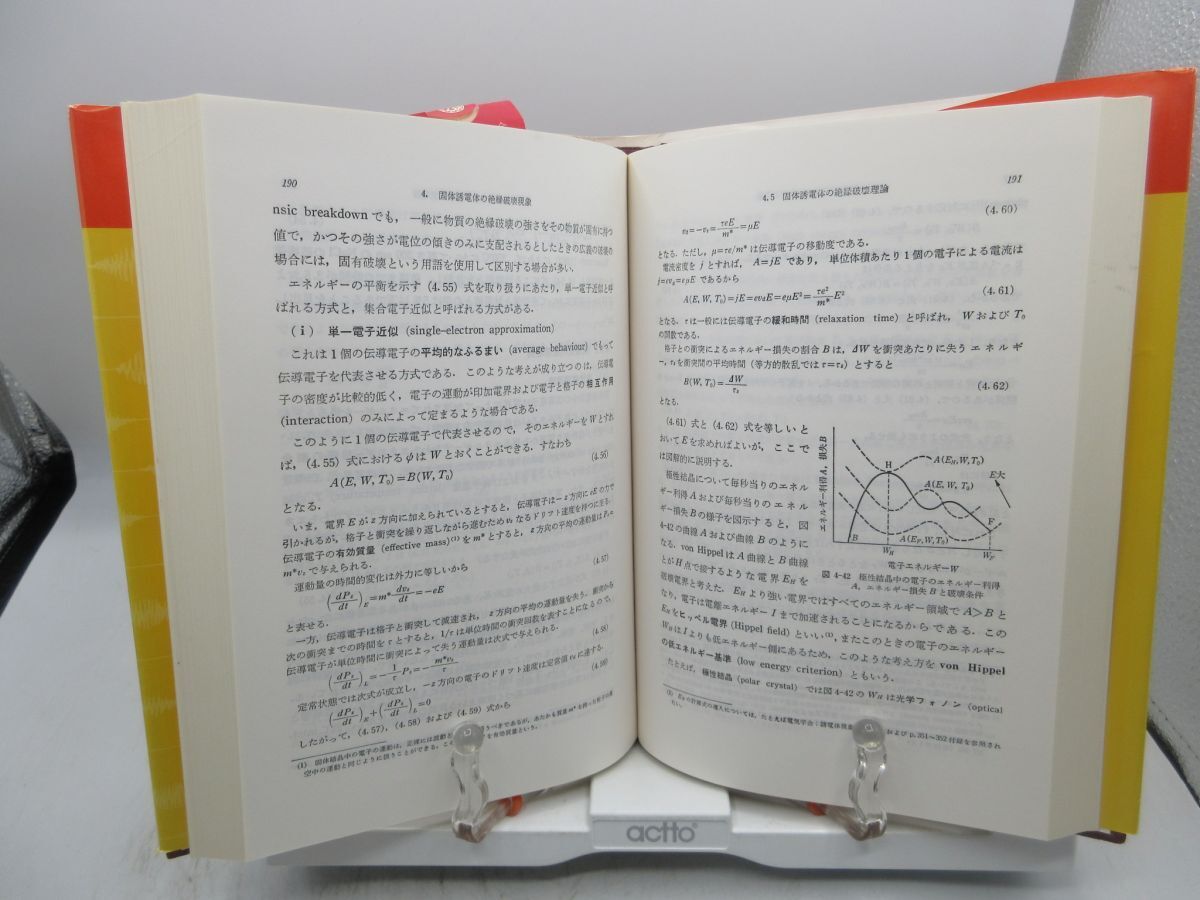 190
4. 固体誘電体の絶縁破壊現象
nsic breakdownでも，一般に物質の絶縁破壊の強さをその物質が固有に持つ
値で，かつその強さが電位の傾きのみに支配されるとしたときの広義の破壊の
場合には，固有破壊という用語を使用して区別する場合が多い．
エネルギーの平衡を示す (4.55) 式を取り扱うにあたり，単一電子近似と呼
ばれる方式と，集合電子近似と呼ばれる方式がある．
(i) 単一電子近似 (single-electron approximation)
これは1個の伝導電子の平均的なふるまい (average behaviour) でもって
伝導電子を代表させる方式である．このような考えが成り立つのは，伝導電
子の密度が比較的低く，電子の運動が印加電界および電子と格子の相互作用
(interaction) のみによって定まるような場合である．
このように1個の伝導電子で代表させるので，そのエネルギーをWとすれ
ば，(4.55) 式におけるφはWとおくことができる．すなわち
A(E, W, T₀)=B(W, T₀) (4.56)
となる．
いま，電界Eがz方向に加えられているとすると，伝導電子は−z方向にeEの力で
引かれるが，格子と衝突を繰り返しながら進むためv_zなるドリフト速度を持つに至る．
伝導電子の有効質量 (effective mass)⁽¹⁾ をm*とすると，z方向の平均の運動量はP_z=
m*v_zで与えられる．
運動量の時間的変化は外力に等しいから
(dP_z/dt)_E=m* dv_z/dt=−eE (4.57)
と表せる．
一方，伝導電子は格子と衝突して減速され，z方向の平均の運動量を失う．衝突から
次の衝突までの時間をτとすると，1/τは単位時間の衝突回数を表すことになるので，
伝導電子が単位時間に衝突によって失う運動量は次式で与えられる．
(dP_z/dt)_L=−1/τ P_z=−m*v_z/τ (4.58)
定常状態では次式が成立し，−z方向の電子のドリフト速度は定常値v_dに達する．
(dP_z/dt)_E+(dP_z/dt)_L=0 (4.59)
したがって，(4.57)，(4.58) および (4.59) 式から
(1) 固体結晶中の電子の運動は，正確には波動と
うべきであるが，あたかも質量m*を持った粒子の真
空中の運動と同じように扱うことができる．
を有効質量という．
4.5 固体誘電体の絶縁破壊理論
191
v_d=−v_z=τeE/m*=μE (4.60)
となる．ただし，μ=τe/m*は伝導電子の移動度である．
電流密度をjとすれば，A=jEであり，単位体積あたり1個の電子による電流は
j=ev_d=eμEであるから
A(E, W, T₀)=jE=ev_dE=eμE²=τe²/m* E² (4.61)
となる．τは一般には伝導電子の緩和時間 (relaxation time) と呼ばれ，WおよびT₀
の関数である．
格子との衝突によるエネルギー損失の割合Bは，ΔWを衝突あたりに失うエネルギ
ー，τ_sを衝突間の平均時間（等方的散乱ではτ=τ_s）とすると
B(W, T₀)=ΔW/τ_s (4.62)
となる．
(4.61) 式と (4.62) 式を等しいと
おいてEを求めればよいが，ここで
は図解的に説明する．
極性結晶について毎秒当りのエネル
ギー利得Aおよび毎秒当りのエネル
ギー損失Bの様子を図示すると，図
4-42の曲線Aおよび曲線Bのように
なる．von HippelはA曲線とB曲線
とがH点で接するような電界E_Hを
破壊電界と考えた．E_Hより強い電界ではすべてのエネルギー領域でA>Bと
なり，電子は電離エネルギーIまで加速されることになるからである．この
E_Hをヒッペル電界 (Hippel field) といい⁽¹⁾，またこのときの電子のエネルギー
W_HはIよりも低エネルギー側にあるため，このような考え方をvon Hippel
の低エネルギー基準 (low energy criterion) ともいう．
たとえば，極性結晶 (polar crystal) では図4-42のW_Hは光学フォノン (optical
エネルギー利得A，損失B
H
A(E_H, W, T₀)
A(E, W, T₀)
E大
F
B
A(E_F, W, T₀)
W_H
W_F
電子エネルギーW
図 4-42 極性結晶中の電子のエネルギー利得
A，エネルギー損失Bと破壊条件
(1) E_Hの計算式の導入については，たとえば電気学会：誘電体現象
および p.351〜352付録を参照され
たい．
actto